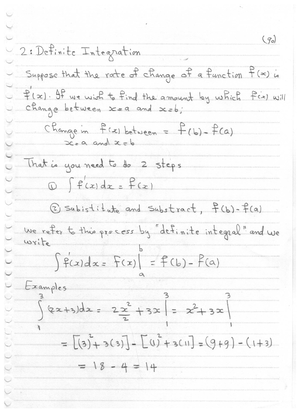 (90)
2: Definite Integration
Suppose that the rate of change of a function f(x) is
f'(x). If we wish to find the amount by which f(x) will
change between x=a and x=b;
Change in f(x) between = f(b) - f(a)
x=a and x=b
That is you need to do 2 steps
① ∫ f'(x) dx = f(x)
② substitute and substract, f(b) - f(a)
we refer to this process by "definite integral" and we
write
∫_a^b f'(x) dx = f(x) |_a^b = f(b) - f(a)
Examples
∫_1^3 (2x+3)dx = 2x²/2 + 3x |_1^3 = x² + 3x |_1^3
= [(3)² + 3(3)] - [(1)² + 3(1)] = (9+9) - (1+3)
= 18 - 4 = 14